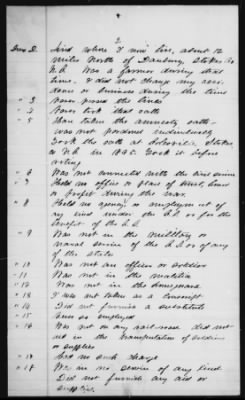 2
Ans 2. Lived where I now live, about 12
miles North of Danbury Stokes Co
N.C. Was a farmer during that
time. I did not change my resi-
dence or business during the time
" 3 Never passed the lines
" 4 Never took that oath
" 5 Have taken the amnesty oath-
was not pardoned individually
Took the oath at Asheville, Stokes
Co N.C. in 1865. Took it before
voting
" 6 Was not connected with the civil service
" 7 Held no office or place of trust, honor
or profit during the war
" 8 Held no agency or employment of
any kind under the C.S. or for the
benefit of the C.S.
" 9 Was not in the military or
naval service of the C.S or of any
of the states
" 10 Was not an officer or soldier
" 11 Was not in the militia
" 12 Was not in the homeguard
" 13 I was not taken as a conscript
" 14 Did not furnish a substitute
" 15 Never so employed
" 16 Was not on any rail-road did not
act in the transportation of soldiers
or supplies
" 17 Had no such charge
" 18 Was in no service of any kind
Did not furnish any aid or
supplies